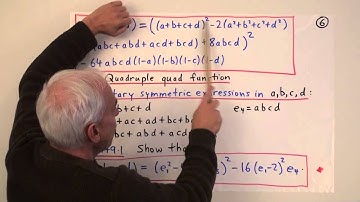 ) = ((a+b+c+d)² - 2(a²+b²+c²+d²) ⑥
(abc+abd+acd+bcd) + 8abcd)²
- 64abcd(1-a)(1-b)(1-c)(1-d)
Quadruple quad function
tary symmetric expressions in a,b,c,d:
+b+c+d e₄=abcd
+ac+ad+bc+bd
bc+abd+acd
Show tha
)²-16(e₁-2)²e₄.